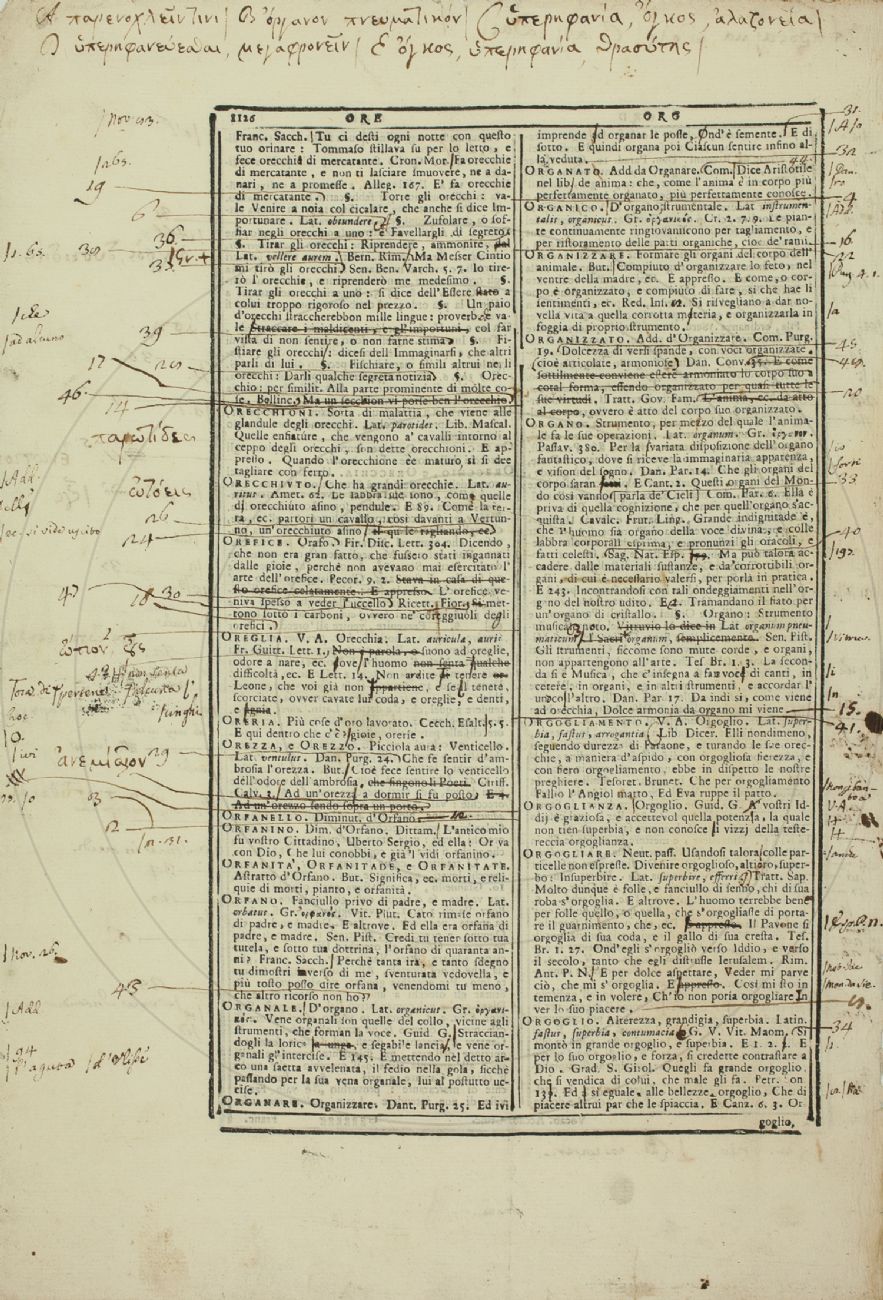 A παρενοχλεῖν τινι | B ὄργανον πνευματικόν | C ὑπερηφανία, ὄγκος, ἀλαζονεία |
D ὑπερηφανεύεσθαι, μεγαφρονεῖν | E ὄγκος, ὑπερηφανία, θρασύτης |
1126 ORE ORG
Franc. Sacch. Tu ci desti ogni notte con questo
tuo orinare: Tommaso stillava su per lo letto, e
fece orecchie di mercatante. Cron. Mor. Fa orecchie
di mercatante, e non ti lasciare smuovere, ne a da-
nari, ne a promesse. Alleg. 167. E' fa orecchie
di mercatante. §. Torre gli orecchi: va-
le Venire a noia col cicalare, che anche si dice Im-
portunare. Lat. obtundere. §. Zufolare, o sof-
fiar negli orecchi a uno: è Favellargli di segreto
§. Tirar gli orecchi: Riprendere, ammonire,
Lat. vellere aurem. Bern. Rim. Ma Messer Cintio
mi tirò gli orecchi. Sen. Ben. Varch. 5. 7. Io tire-
rò l'orecchie, e riprenderò me medesimo. §.
Tirar gli orecchi a uno: si dice dell'Essere stato a
colui troppo rigoroso nel prezzo. §. Un paio
d'orecchi straccherebbon mille lingue: proverb. e va-
le Straccare i maldicenti, e gl'importuni, col far
vista di non sentire, o non farne stima. §. Fi-
stiare gli orecchi: dicesi dell'Immaginarsi, che altri
parli di lui. §. Fischiare, o simili altrui ne li
orecchi: Darli qualche segreta notizia. §. Orec-
chio: per similit. Alla parte prominente di molte co-
se. Bellinc. Ma un secchion vi porse ben l'orecchio
ORECCHIONI. Sorta di malattia, che viene alle
glandule degli orecchi. Lat. parotides. Lib. Mascal.
Quelle enfiature, che vengono a' cavalli intorno al
ceppo degli orecchi, son dette orecchioni. E ap-
presso. Quando l'orecchione èe maturo si si dee
tagliare con ferro.
ORECCHIUTO. Che ha grandi orecchie. Lat. au-
ritus. Amet. 62. Le labbra sue sono, come quelle
di orecchiuto asino, pendule. E 89. Come la ter-
ra, ec. partorì un cavallo, così davanti a Vertun-
no, un'orecchiuto asino il qu le rigliando, ec.
OREFICE. Orafo. Fir. Disc. Lett. 304. Dicendo,
che non era gran fatto, che fussero stati ingannati
dalle gioie, perchè non avevano mai esercitato l'
arte dell'orefice. Pecor. 9. 2. Stava in casa di que-
sto orefice celatamente. E appresso. L'orefice ve-
niva spesso a veder l'uccello. Ricett. Fior. Si met-
tono sotto i carboni, ovvero ne' coreggiuoli degli
orefici.
OREGLIA. V. A. Orecchia. Lat. auricula, auris
Fr. Guitt. Lett. 1. Non j parola, o suono ad oreglie,
odore a nare, ec. ove l'huomo non senta qualche
difficoltà, ec. E Lett. 14. Non ardite di tenere
Leone, che voi già non appartiene, e se il tenete,
scorciate, ovver cavate lui coda, e oreglie, e denti,
e
ORERIA. Più cose d'oro lavorato. Cecch. Esalt. 5. 5.
E quì dentro che c'è? gioie, orerie.
OREZZA, e OREZZO. Picciola aura: Venticello.
Lat. ventulus. Dan. Purg. 24. Che fe sentir d'am-
brosia l'orezza. But. Cioè fece sentire lo venticello
dell'odore dell'ambrosia, che fingono li Poeti. Ciriff.
Calv. 3. Ad un'orezza a dormir si fu posto. E 4.
Ad un'orezzo sendo sopra un porto.
ORFANELLO. Diminut. d'Orfano.
ORFANINO. Dim. d'Orfano. Dittam. L'antico mio
fu vostro Cittadino, Uberto Sergio, ed ella: Or va
con Dio, Che lui conobbi, e già 'l vidi orfanino.
ORFANITA', ORFANITADE, e ORFANITATE.
Astratto d'Orfano. But. Significa, ec. morti, e reli-
quie di morti, pianto, e orfanità.
ORFANO. Fanciullo privo di padre, e madre. Lat.
orbatus. Gr. ὀρφανός. Vit. Plut. Cato rimase orfano
di padre, e madre. E altrove. Ed ella era orfana di
padre, e madre. Sen. Pist. Credi tu tener sotto tua
tutela, e sotto tua dottrina, l'orfano di quaranta an-
ni? Franc. Sacch. Perchè tanta ira, e tanto sdegno
tu dimostri inverso di me, sventurata vedovella, e
più tosto posso dire orfana, venendomi tu meno,
che altro ricorso non ho?
ORGANALE. D'organo. Lat. organicus. Gr. ὀργανι-
κός. Vene organali son quelle del collo, vicine agli
strumenti, che forman la voce. Guid. G. Straccian-
dogli la lorica la unga, e segabi'e lancia, e vene or-
ganali gl'intercise. E 145. E mettendo nel detto ar-
co una saetta avvelenata, il fedìo nella gola, sicchè
passando per la sua vena organale, lui al postutto uc-
cise.
ORGANARE. Organizzare. Dant. Purg. 25. Ed ivi
imprende ad organar le posse, Ond'è semente. E di
sotto. E quindi organa poi Ciascun sentire infino al-
la veduta.
ORGANATO. Add da Organare. Com. Dice Aristotile
nel lib. de anima: che, come l'anima è in corpo più
perfettamente organato, più perfettamente conosce.
ORGANICO. D'organo, strumentale. Lat. instrumen-
talis, organicus. Gr. ὀργανικός. Cr. 2. 7. 9. Le pian-
te continuamente ringiovaniscono per tagliamento, e
per ristoramento delle parti organiche, cioè de' rami.
ORGANIZZARE. Formare gli organi del corpo dell'
animale. But. Compiuto d'organizzare lo feto, nel
ventre della madre, ec. E appresso. E come, o cor-
po è organizzato, e compiuto di fare, sì che hae li
sentimenti, ec. Red. Ins. 12. Si risvegliano a dar no-
vella vita a quella corrotta materia, e organizzarla in
foggia di proprio strumento.
ORGANIZZATO. Add. d'Organizzare. Com. Purg.
19. Dolcezza di versi spande, con voci organizzate,
cioè articolate, armoniose. Dan. Conv. 137. E come
sottilmente conviene essere armoniato lo corpo suo a
cotal forma, essendo organizzato per quasi tutte le
sue virtudi. Tratt. Gov. Fam. L'anima, ec. dà atto
al corpo, ovvero è atto del corpo suo organizzato.
ORGANO. Strumento, per mezzo del quale l'anima-
le fa le sue operazioni. Lat. organum. Gr. ὄργανον.
Passav. 380. Per la svariata disposizione dell'organo
fantastico, dove si riceve la immaginaria apparenza,
e vision del sogno. Dan. Par. 14. Che gli organi del
corpo saran E Cant. 2. Questi organi del Mon-
do così vanno, parla de' Cieli. Com. Par. 6. Ella è
priva di quella cognizione, che per quell'organo s'ac-
quista. Cavalc. Frut. Ling. Grande indignitade è,
che l'huomo sia organo della voce divina, e colle
labbra corporali esprima, e pronunzi gli oracoli, e
fatti celesti. Sag. Nat. Esp. Ma può talora ac-
cadere dalle materiali sustanze, e da'corrottibili or-
gani, di cui è necessario valersi, per porla in pratica.
E 243. Incontrandosi con tali ondeggiamenti nell'or-
gano del nostro udito. E Tramandano il fiato per
un'organo di cristallo. §. Organo: Strumento
musicale noto. Vitruvio lo dice in Lat organum pneu-
maticum. I Sacri organum, semplicemente. Sen. Pist.
Gli strumenti, siccome sono mute corde, e organi,
non appartengono all'arte. Tes Br. 1. 3. La secon-
da si è Musica, che c'insegna a far voce di canti, in
cetere, in organi, e in altri strumenti, e accordar l'
uno coll'altro. Dan. Par. 17. Da indi sì, come viene
ad orecchia, Dolce armonìa da organo mi viene
ORGOGLIAMENTO. V. A. Orgoglio. Lat. super-
bia, fastus, arrogantia. Lib Dicer. Elli nondimeno,
seguendo durezza di Faraone, e turando le sue orec-
chie, a maniera d'aspido, con orgogliosa fierezza, e
con fiero orgogliamento, ebbe in dispetto le nostre
preghiere. Tesoret. Brunet. Che per orgogliamento
Fallò l'Angiol matto, Ed Eva ruppe il patto.
ORGOGLIANZA. Orgoglio. Guid. G. A vostri Id-
dij è graziosa, e accettevol quella potenzia, la quale
non tien superbia, e non conosce i vizzj della teste-
reccia orgoglianza.
ORGOGLIARE. Neut. pass. Usandosi talora colle par-
ticelle non espresse. Divenire orgoglioso, altiero, super-
bo: Insuperbire. Lat. superbire, efferri. Tratt. Sap.
Molto dunque è folle, e fanciullo di senno, chi di sua
roba s'orgoglia. E altrove. L'huomo terrebbe bene
per folle quello, o quella, che s'orgogliasse di porta-
re il guarnimento, che, ec. E appresso. Il Pavone si
orgoglia di sua coda, e il gallo di sua cresta. Tes.
Br. 1. 27. Ond'egli s'orgogliò verso Iddio, e verso
il secolo, tanto che egli distrusse Ierusalem. Rim.
Ant. P. N. E per dolce aspettare, Veder mi parve
ciò, che mi s'orgoglia. E appresso. Così mi sto in
temenza, e in volere, Ch'io non poria orgogliare In
ver lo suo piacere.
ORGOGLIO. Alterezza, grandigia, superbia. Latin.
fastus, superbia, contumacia. G. V. Vit. Maom. Si
montò in grande orgoglio, e superbia. E 1. 2. 1. E
per lo suo orgoglio, e forza, si credette contrastare a
Dio. Grad. S. Girol. Quegli fa grande orgoglio,
che si vendica di colui, che male gli fa. Petr. on
131. Ed è sì eguale, alle bellezze orgoglio, Che di
piacere altrui par che le spiaccia. E Canz. 6. 3. Or
goglio,
19
6
39
36
39
17
20
46
14
παρωτίδες
ὠτόεις
26
24
47
18 30
29
ἀνεμίδιον
3
2
43
31
44
4
16
22
45
20
33
40
15.
41.
34